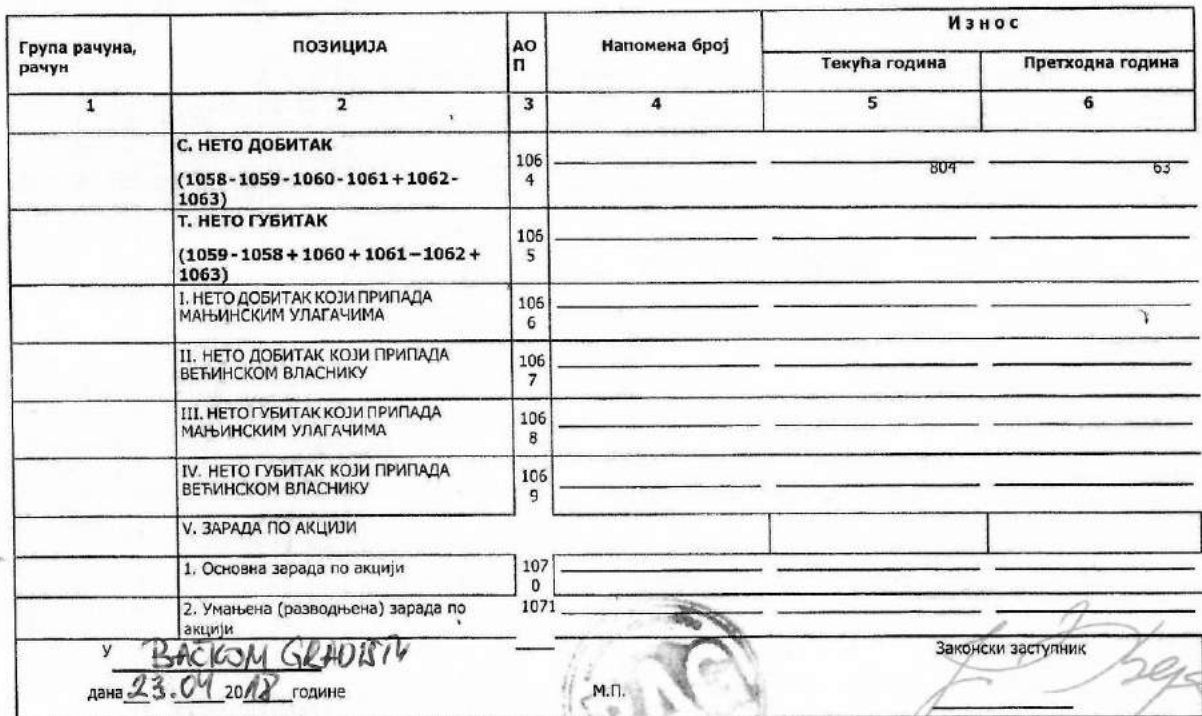 Група рачуна, рачун ПОЗИЦИЈА АОП Напомена број Износ
Текућа година Претходна година
1 2 3 4 5 6
С. НЕТО ДОБИТАК
(1058-1059-1060-1061+1062-
1063)
1064 804 63
Т. НЕТО ГУБИТАК
(1059-1058+1060+1061–1062+
1063)
1065
I. НЕТО ДОБИТАК КОЈИ ПРИПАДА
МАЊИНСКИМ УЛАГАЧИМА
1066
II. НЕТО ДОБИТАК КОЈИ ПРИПАДА
ВЕЋИНСКОМ ВЛАСНИКУ
1067
III. НЕТО ГУБИТАК КОЈИ ПРИПАДА
МАЊИНСКИМ УЛАГАЧИМА
1068
IV. НЕТО ГУБИТАК КОЈИ ПРИПАДА
ВЕЋИНСКОМ ВЛАСНИКУ
1069
V. ЗАРАДА ПО АКЦИЈИ
1. Основна зарада по акцији
1070
2. Умањена (разводњена) зарада по
акцији
1071
У BAČKOM GRADIŠTU
Законски заступник
дана 23.04 2018 године
М.П.